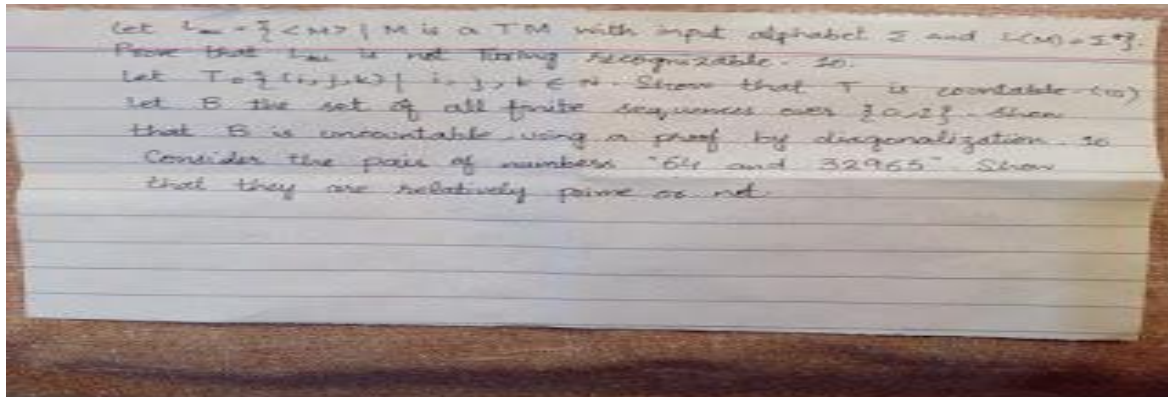 Let L = {<M> | M is a TM with input alphabet Σ and L(M) = Σ*}.
Prove that is not Turing recognizable. 10.
Let T = {(i, j, k) | i, j, k ∈ N. Show that T is countable. (10)
Let B the set of all finite sequences over {0,1}. Show
that B is uncountable using a proof by diagonalization. 10
Consider the pair of numbers "64 and 32965" Show
that they are relatively prime or not.